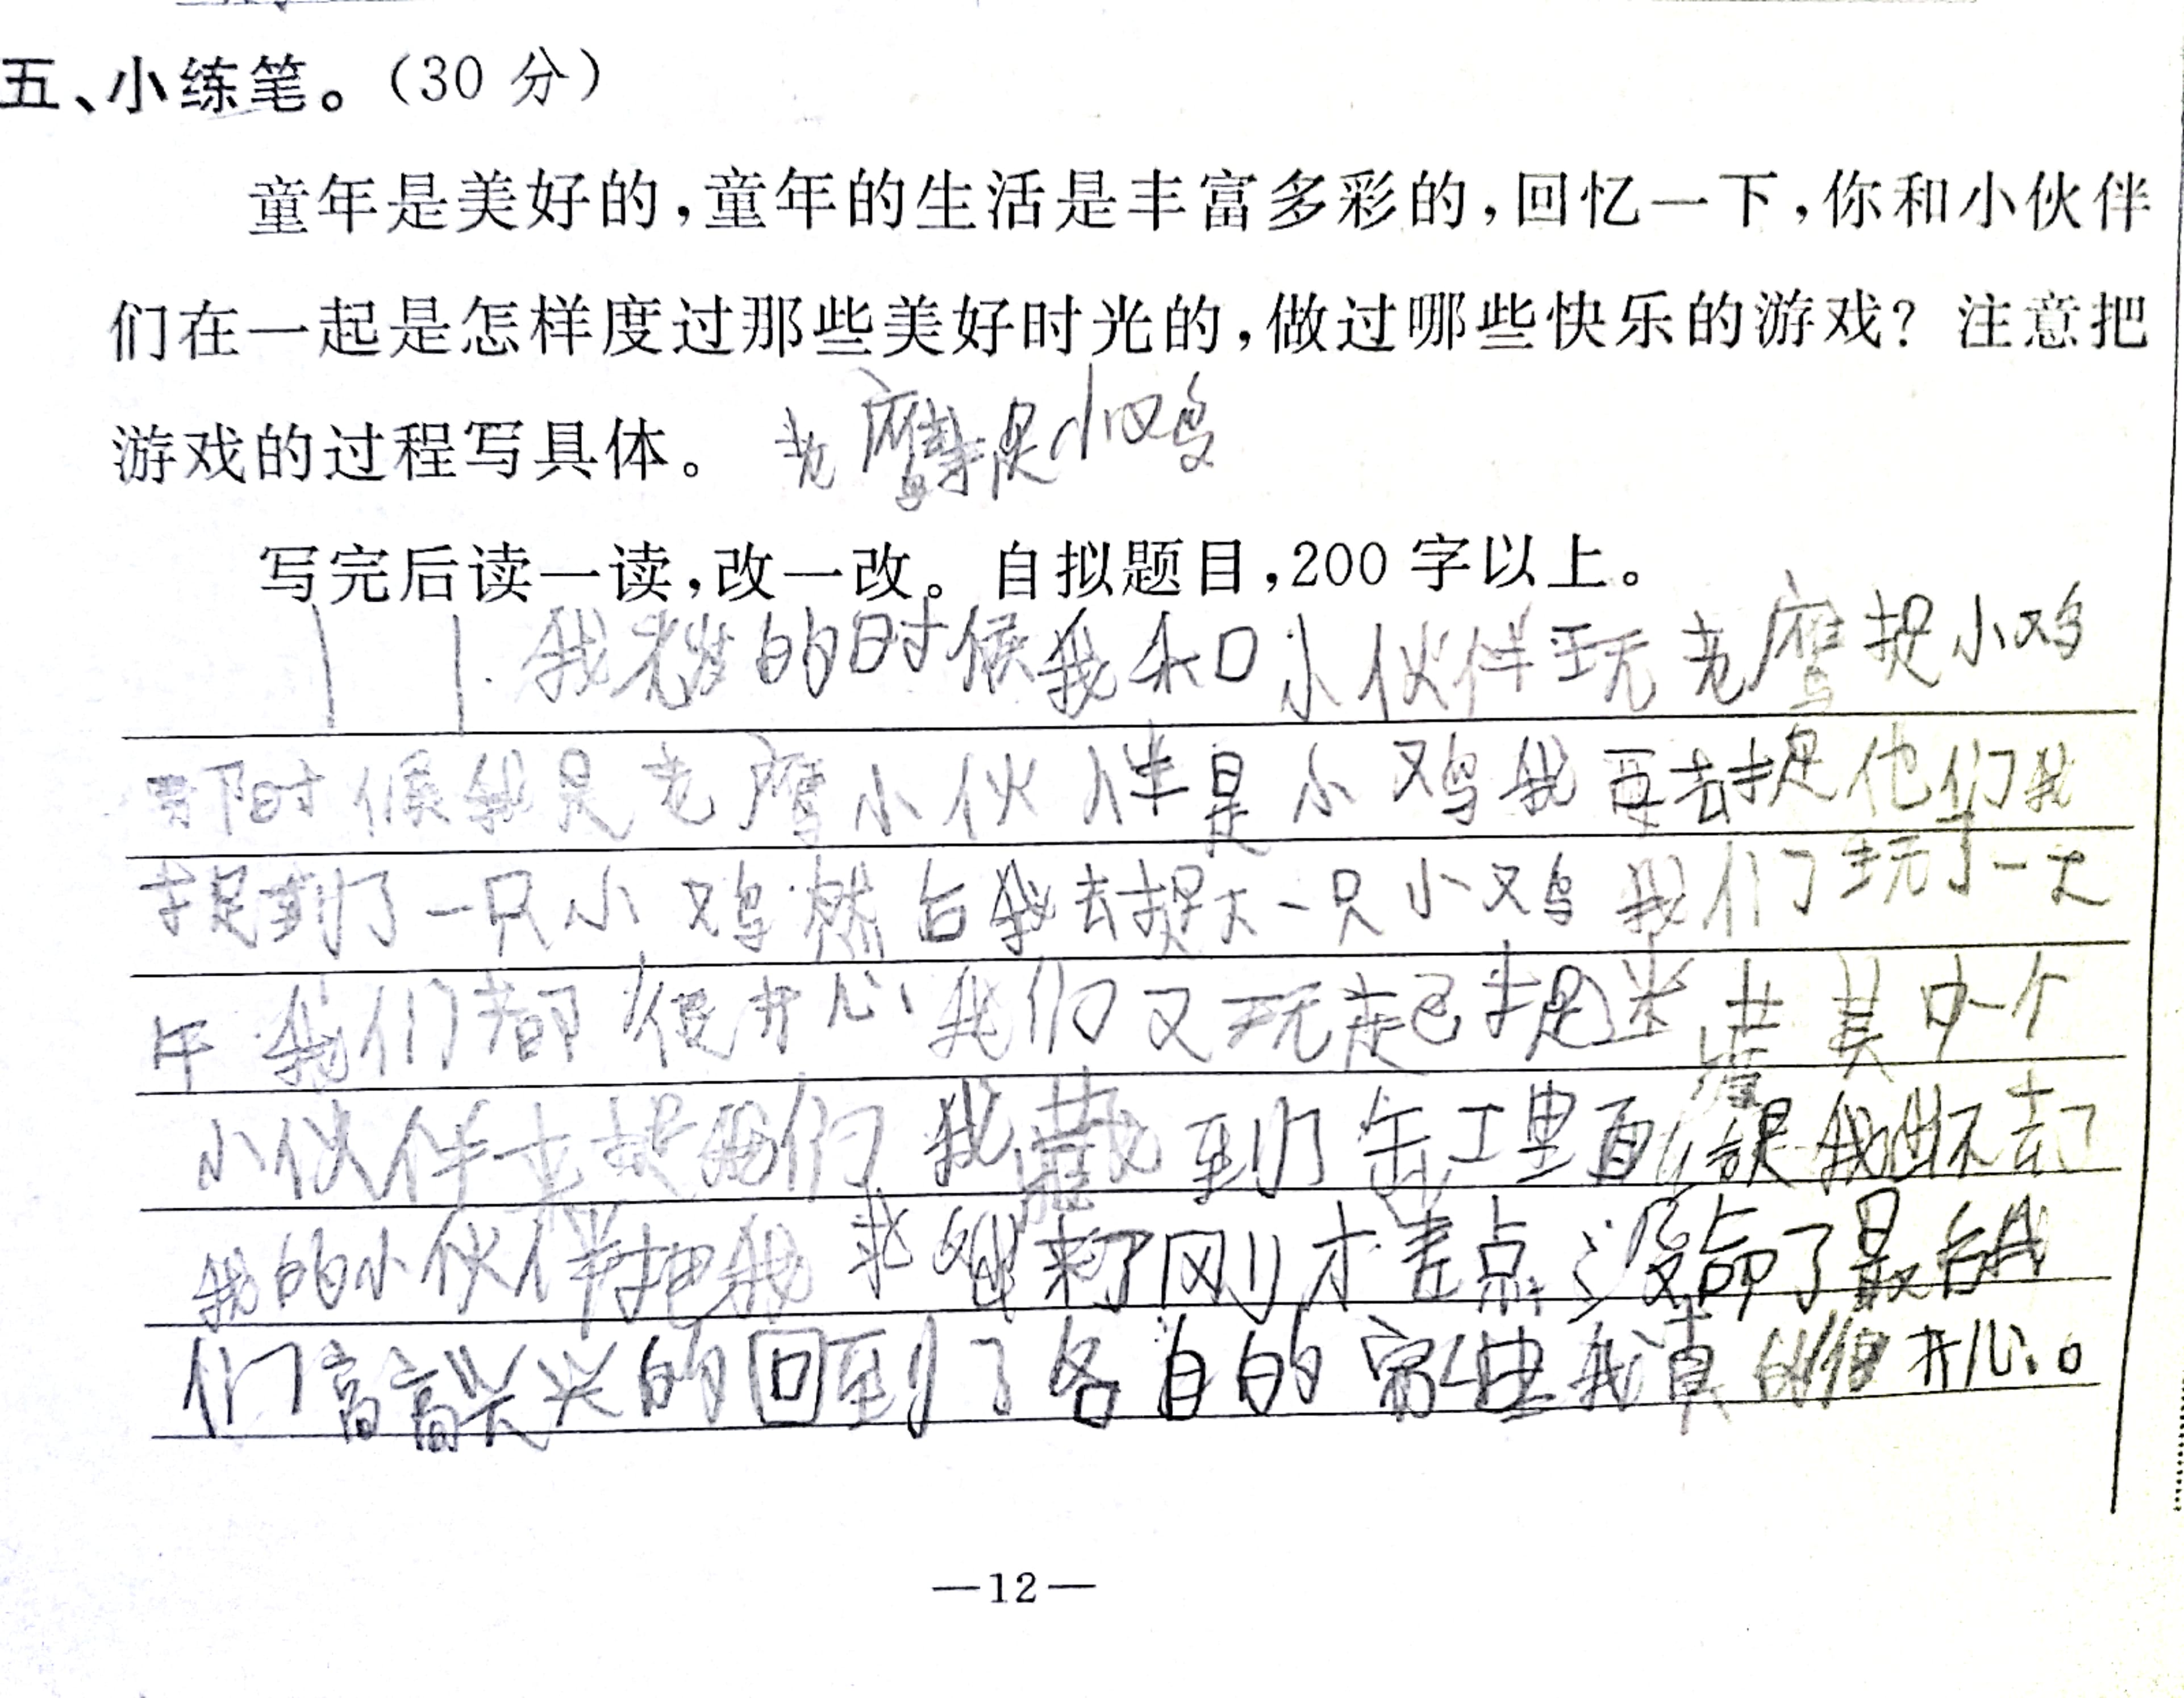 五、小练笔。（30 分）
童年是美好的，童年的生活是丰富多彩的，回忆一下，你和小伙伴
们在一起是怎样度过那些美好时光的，做过哪些快乐的游戏？注意把
游戏的过程写具体。 老鹰捉小鸡
写完后读一读，改一改。自拟题目，200 字以上。
我 岁的时候我和小伙伴玩老鹰捉小鸡
那时候我是老鹰小伙伴是小鸡我再去捉他们我
捉到了一只小鸡然后我去捉下一只小鸡我们玩了一下
午我们都很开心我们又玩起捉迷藏其中一个
小伙伴去捉我们我藏到缸里面 是我出不去了
我的小伙伴把我 来了刚才差点没命了最后我
们高高兴兴的回到了各自的家 我真的很开心。
—12—